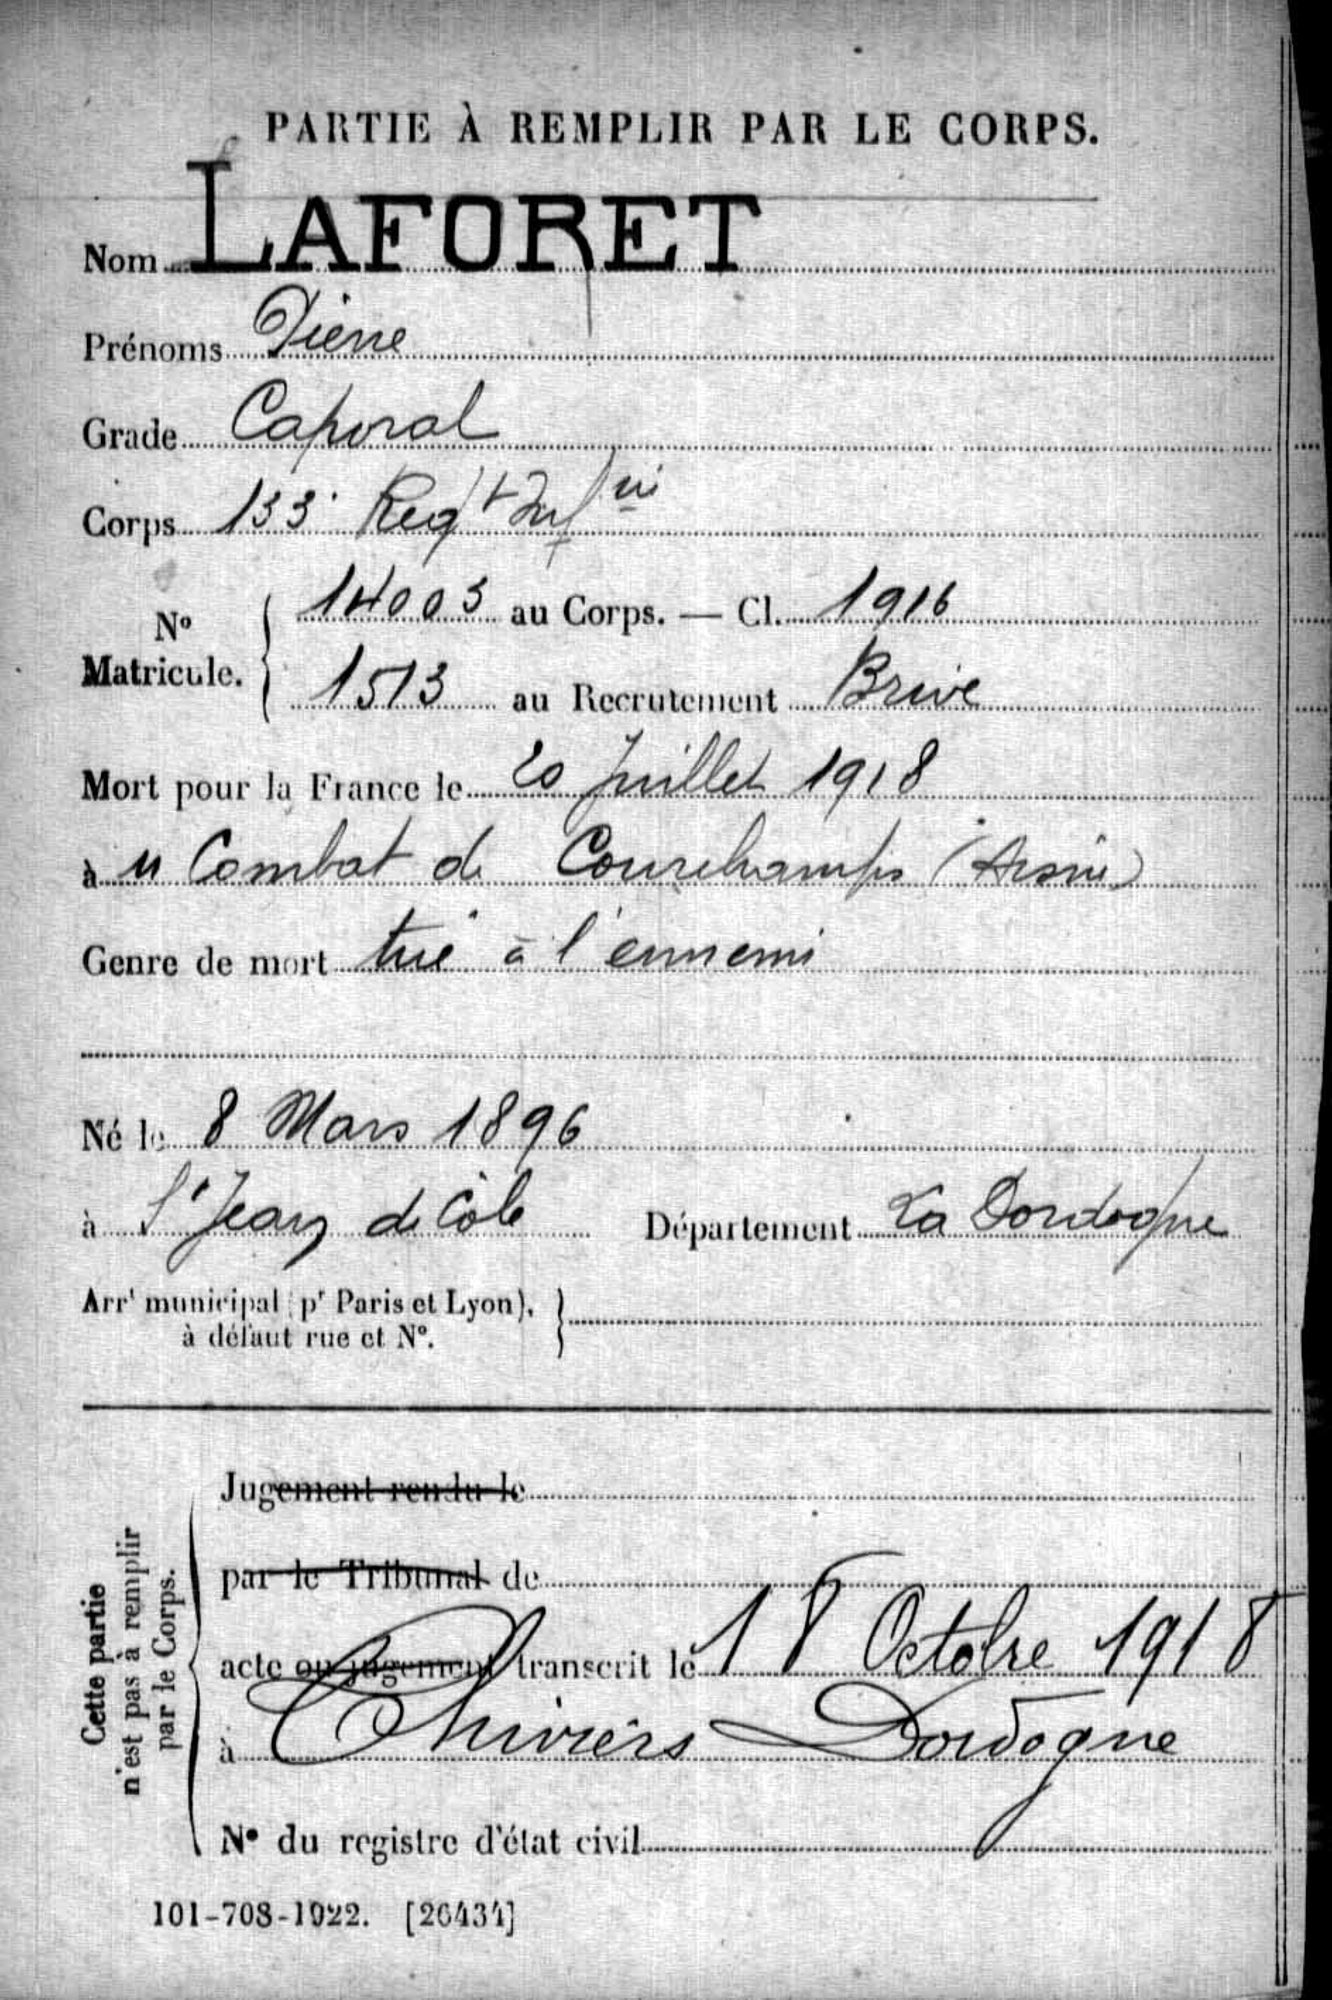 PARTIE À REMPLIR PAR LE CORPS.
Nom LAFORET
Prénoms Pierre
Grade Caporal
Corps 133e Regt Infie
No Matricule. 14003 au Corps. — Cl. 1916
1513 au Recrutement Brive
Mort pour la France le 20 Juillet 1918
à u Combat de Courchamps (Aisne)
Genre de mort tué à l'ennemi
Né le 8 Mars 1896
à St Jean de Côle Département La Dordogne
Arrt municipal (pr Paris et Lyon),
à défaut rue et No.
Cette partie
n'est pas à remplir
par le Corps.
Jugement rendu le
par le Tribunal de
acte ou jugement transcrit le 18 Octobre 1918
à Thiviers Dordogne
No du registre d'état civil
101-708-1922. [26434]